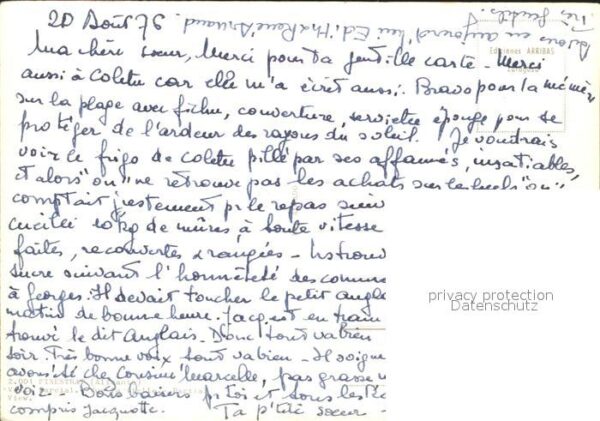 20 Août 76
Avons eu aujourd'hui Edith & René Arnaud.
Très gentils!
Ediciones ARRIBAS
Zaragoza
Ma chère sœur, Merci pour ta gentille carte - Merci
aussi à Colette car elle m'a écrit aussi. Bravo pour la mémère
sur la plage avec fichu, couverture, serviette éponge pour se
protéger de l'ardeur des rayons du soleil. Je voudrais
voir le frigo de Colette pillé par ses affamés, insatiables,
et alors "on" ne retrouve pas les achats sur lesquels "on"
comptait justement pr le repas
cueilli 10 kg de mûres, à toute vitesse
faites, recouvertes & rangées -
sucre suivant l'honnêteté des comme
à Georges. Il devait toucher le petit angla
matin de bonne heure. Jacq. est en train
trouvé le dit Anglais. Donc tout va bien
soir. Très bonne voix tout va bien - Il soigne
avons été chez Cousine Marcelle, pas grasse
voir - Bons baisers pr toi et tous les
compris Jacquotte. Ta p'tite sœur -
privacy protection
Datenschutz